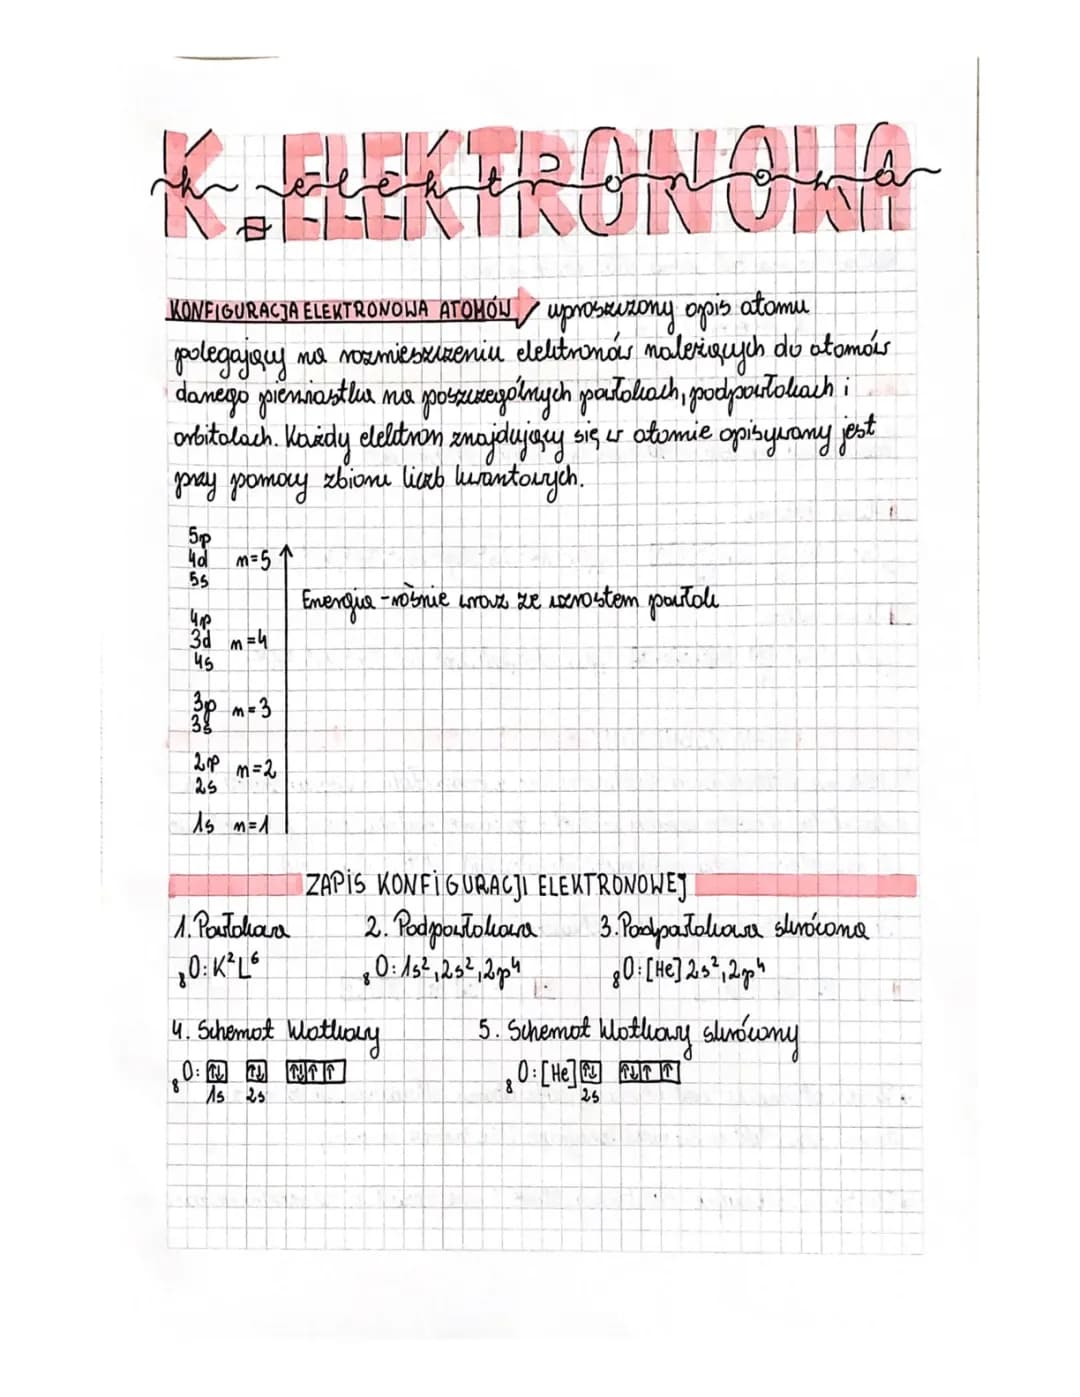 K. ELEKTRONOWA
k. elektronowa
KONFIGURACJA ELEKTRONOWA ATOMÓW uproszczony opis atomu
polegający na rozmieszczeniu elektronów należących do atomów
danego pierwiastka na poszczególnych powłokach, podpowłokach i
orbitalach. Każdy elektron znajdujący się w atomie opisywany jest
przy pomocy zbioru liczb kwantowych.
5p
4d n=5
5s
Energia - rośnie wraz ze wzrostem powłok
4p
3d n=4
4s
3p n=3
3s
2p n=2
2s
1s n=1
ZAPIS KONFIGURACJI ELEKTRONOWEJ
1. Powłokowa 2. Podpowłokowa 3. Podpowłokowa skrócona
₈O: K²L⁶ ₈O: 1s², 2s², 2p⁴ ₈O: [He] 2s², 2p⁴
4. Schemat klatkowy 5. Schemat klatkowy skrócony
₈O: ↑↓ ↑↓ ↑↓ ↑ ↑ ₈O: [He] ↑↓ ↑↓ ↑ ↑
1s 2s 2s